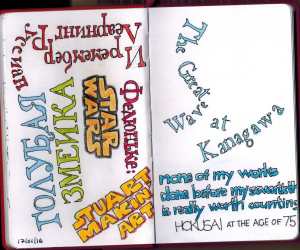 И ремембер
Леарнинг
Русиан
ГОЛУБАЯ
ЗМЕЙКА
STAR
WARS
Федюнька:
STUART
MAKIN
ART
The Great
Wave at
Kanagawa
none of my works
done before my seventieth
is really worth counting
HOKUSAI AT THE AGE OF 75